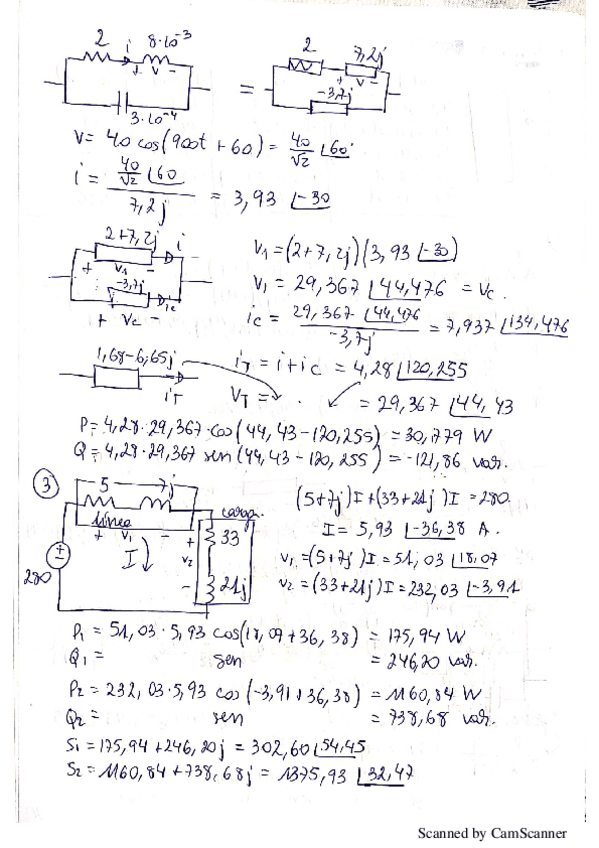 2 i 8·10⁻³
+ v -
3·10⁻⁴
=
2 7,2j
+ v -
-3,7j
V = 40 cos(900t + 60) = 40/√2 ∠60
i = (40/√2 ∠60)/(7,2j) = 3,93 ∠-30
2+7,2j i
+ v₁ -
-3,7j
+ Vc - ic
V₁ = (2+7,2j)(3,93 ∠-30)
V₁ = 29,367 ∠44,476 = Vc.
ic = (29,367 ∠44,476)/(-3,7j) = 7,937 ∠134,476
1,68-6,65j
iT
iT = i + ic = 4,28 ∠120,255
VT = = 29,367 ∠44,43
P = 4,28·29,367 cos(44,43-120,255) = 30,779 W
Q = 4,28·29,367 sen(44,43-120,255) = -121,86 var.
3
5 7j
linea
+ v₁ -
carga
I
280
+ v₂ -
33
21j
(5+7j)I + (33+21j)I = 280
I = 5,93 ∠-36,38 A.
V₁ = (5+7j)I = 51,03 ∠18,07
V₂ = (33+21j)I = 232,03 ∠-3,91
P₁ = 51,03·5,93 cos(18,07+36,38) = 175,94 W
Q₁ = sen = 246,20 var.
P₂ = 232,03·5,93 cos(-3,91+36,38) = 1160,84 W
Q₂ = sen = 738,68 var.
S₁ = 175,94+246,20j = 302,60 ∠54,45
S₂ = 1160,84+738,68j = 1375,93 ∠32,47
Scanned by CamScanner